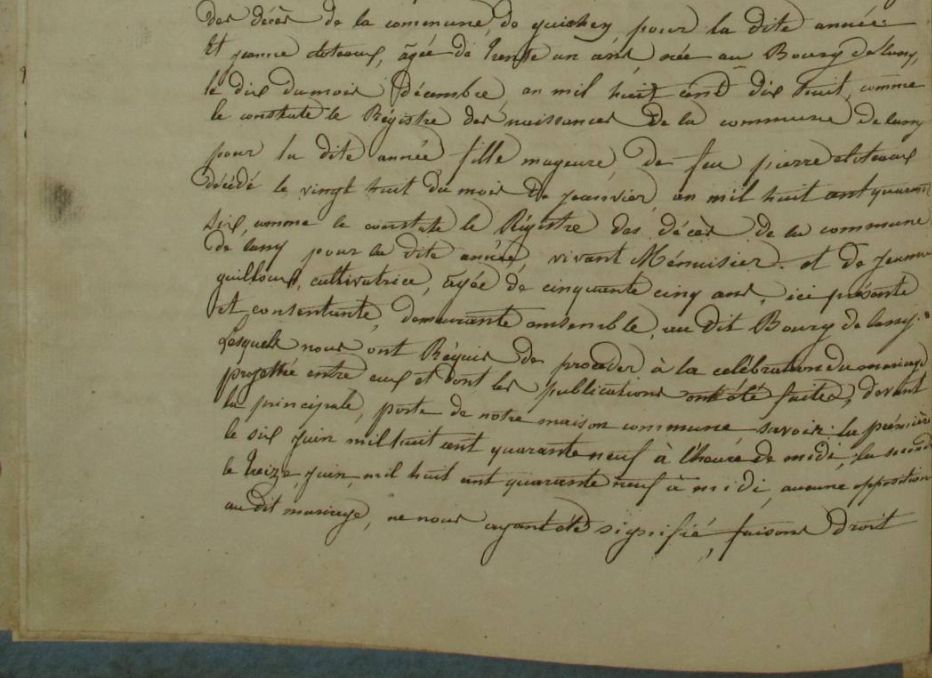 des décès de la commune de guichen, pour la dite année.
Et jeanne, âgée de trente un ans, née au Bourg de lassy,
le dix du mois Décembre, an mil huit cent dix huit, comme
le constate le Régistre des naissances De la commune de lassy
pour la dite année fille majeure De feu pierre
décédé le vingt huit du mois De janvier, an mil huit cent quarante
six, comme le constate le Régistre des décès de la commune
de lassy pour la dite année, vivant Ménuisier. et de jeanne
cultivatrice, âgée de cinquante cinq ans, ici présente
et consentante, demeurante ensemble, au dit Bourg de lassy.
Lesquels nous ont Réquis de procéder à la célébration du mariage
projetté entre eux et dont les publications ont été faites, devant
la principale, porte de notre maison commune savoir: la prémière
le six juin mil huit cent quarante neuf à l'heure de midi, la seconde
le treize juin mil huit cent quarante neuf à midi, aucune opposition
au dit mariage, ne nous ayant été signifié, faisons droit